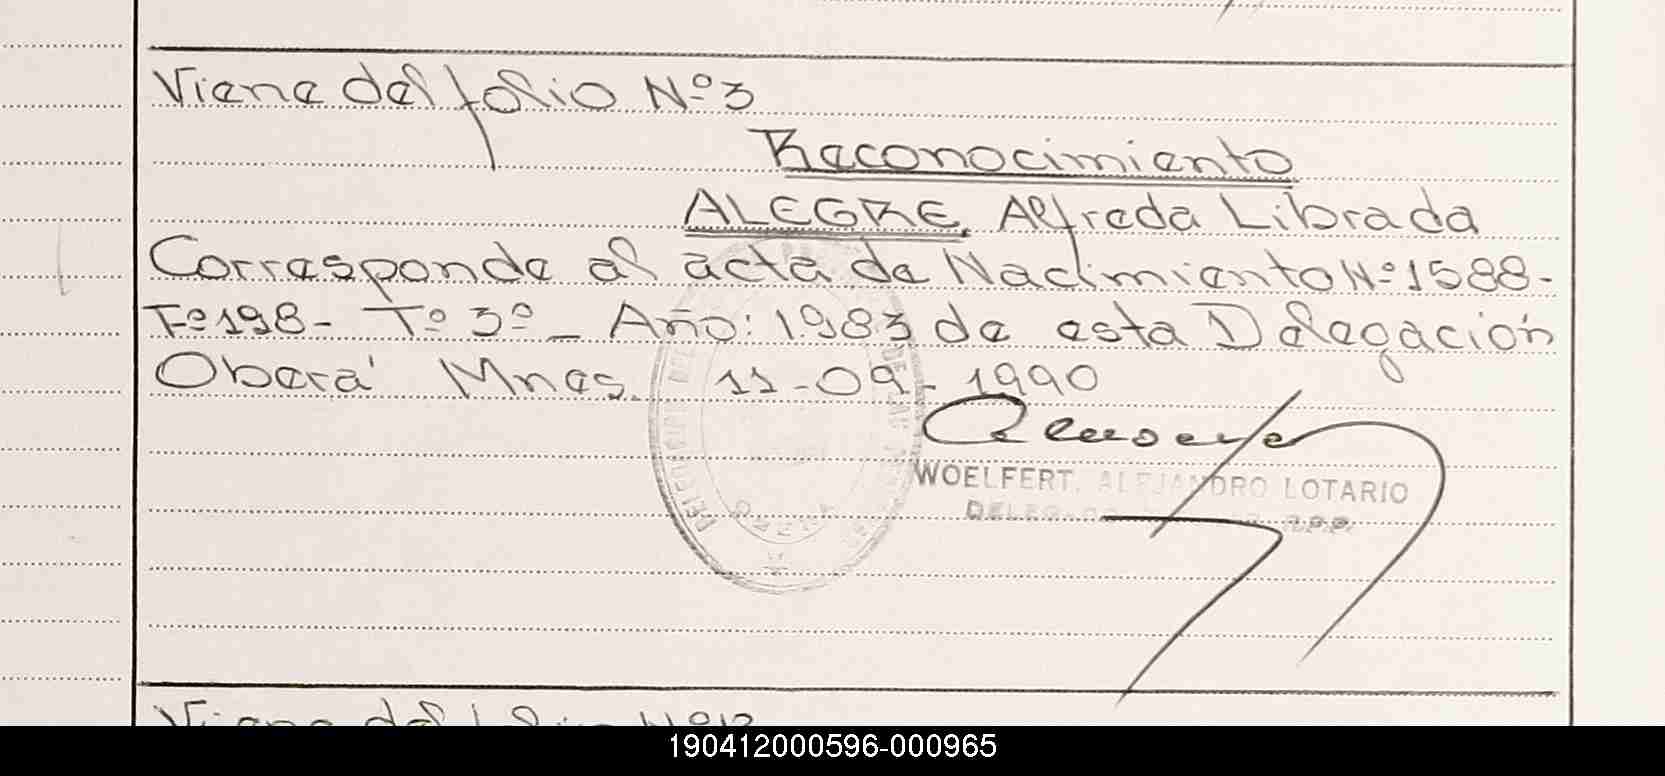 Viene del folio Nº3
Reconocimiento
ALEGRE, Alfreda Librada
Corresponde al acta de Nacimiento Nº1588-
Fº198- Tº 3º - Año: 1983 de esta Delegación
Oberá Mnes. 11-09-1990
WOELFERT, ALEJANDRO LOTARIO
Viene del folio Nº
190412000596-000965